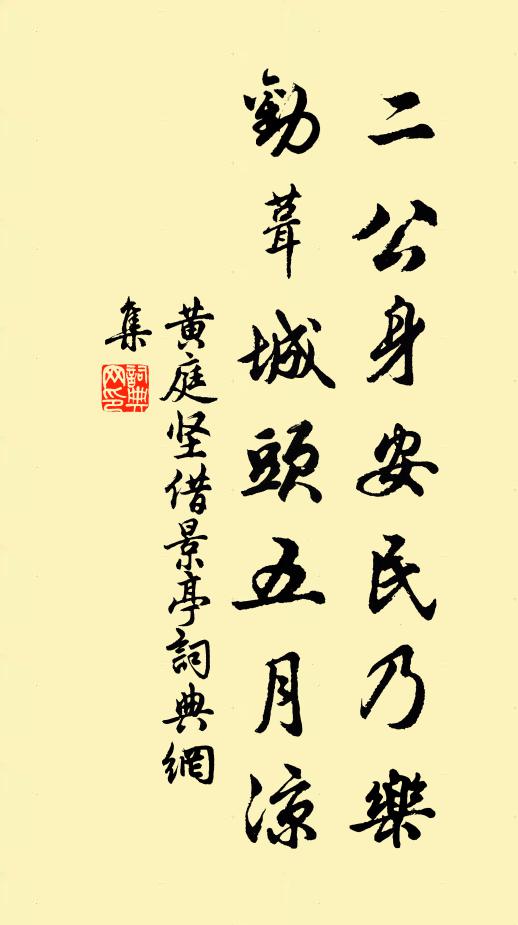 二公身安民乃樂
勸葺城頭五月涼
黃庭坚借景亭詞典網
集
詞典网印